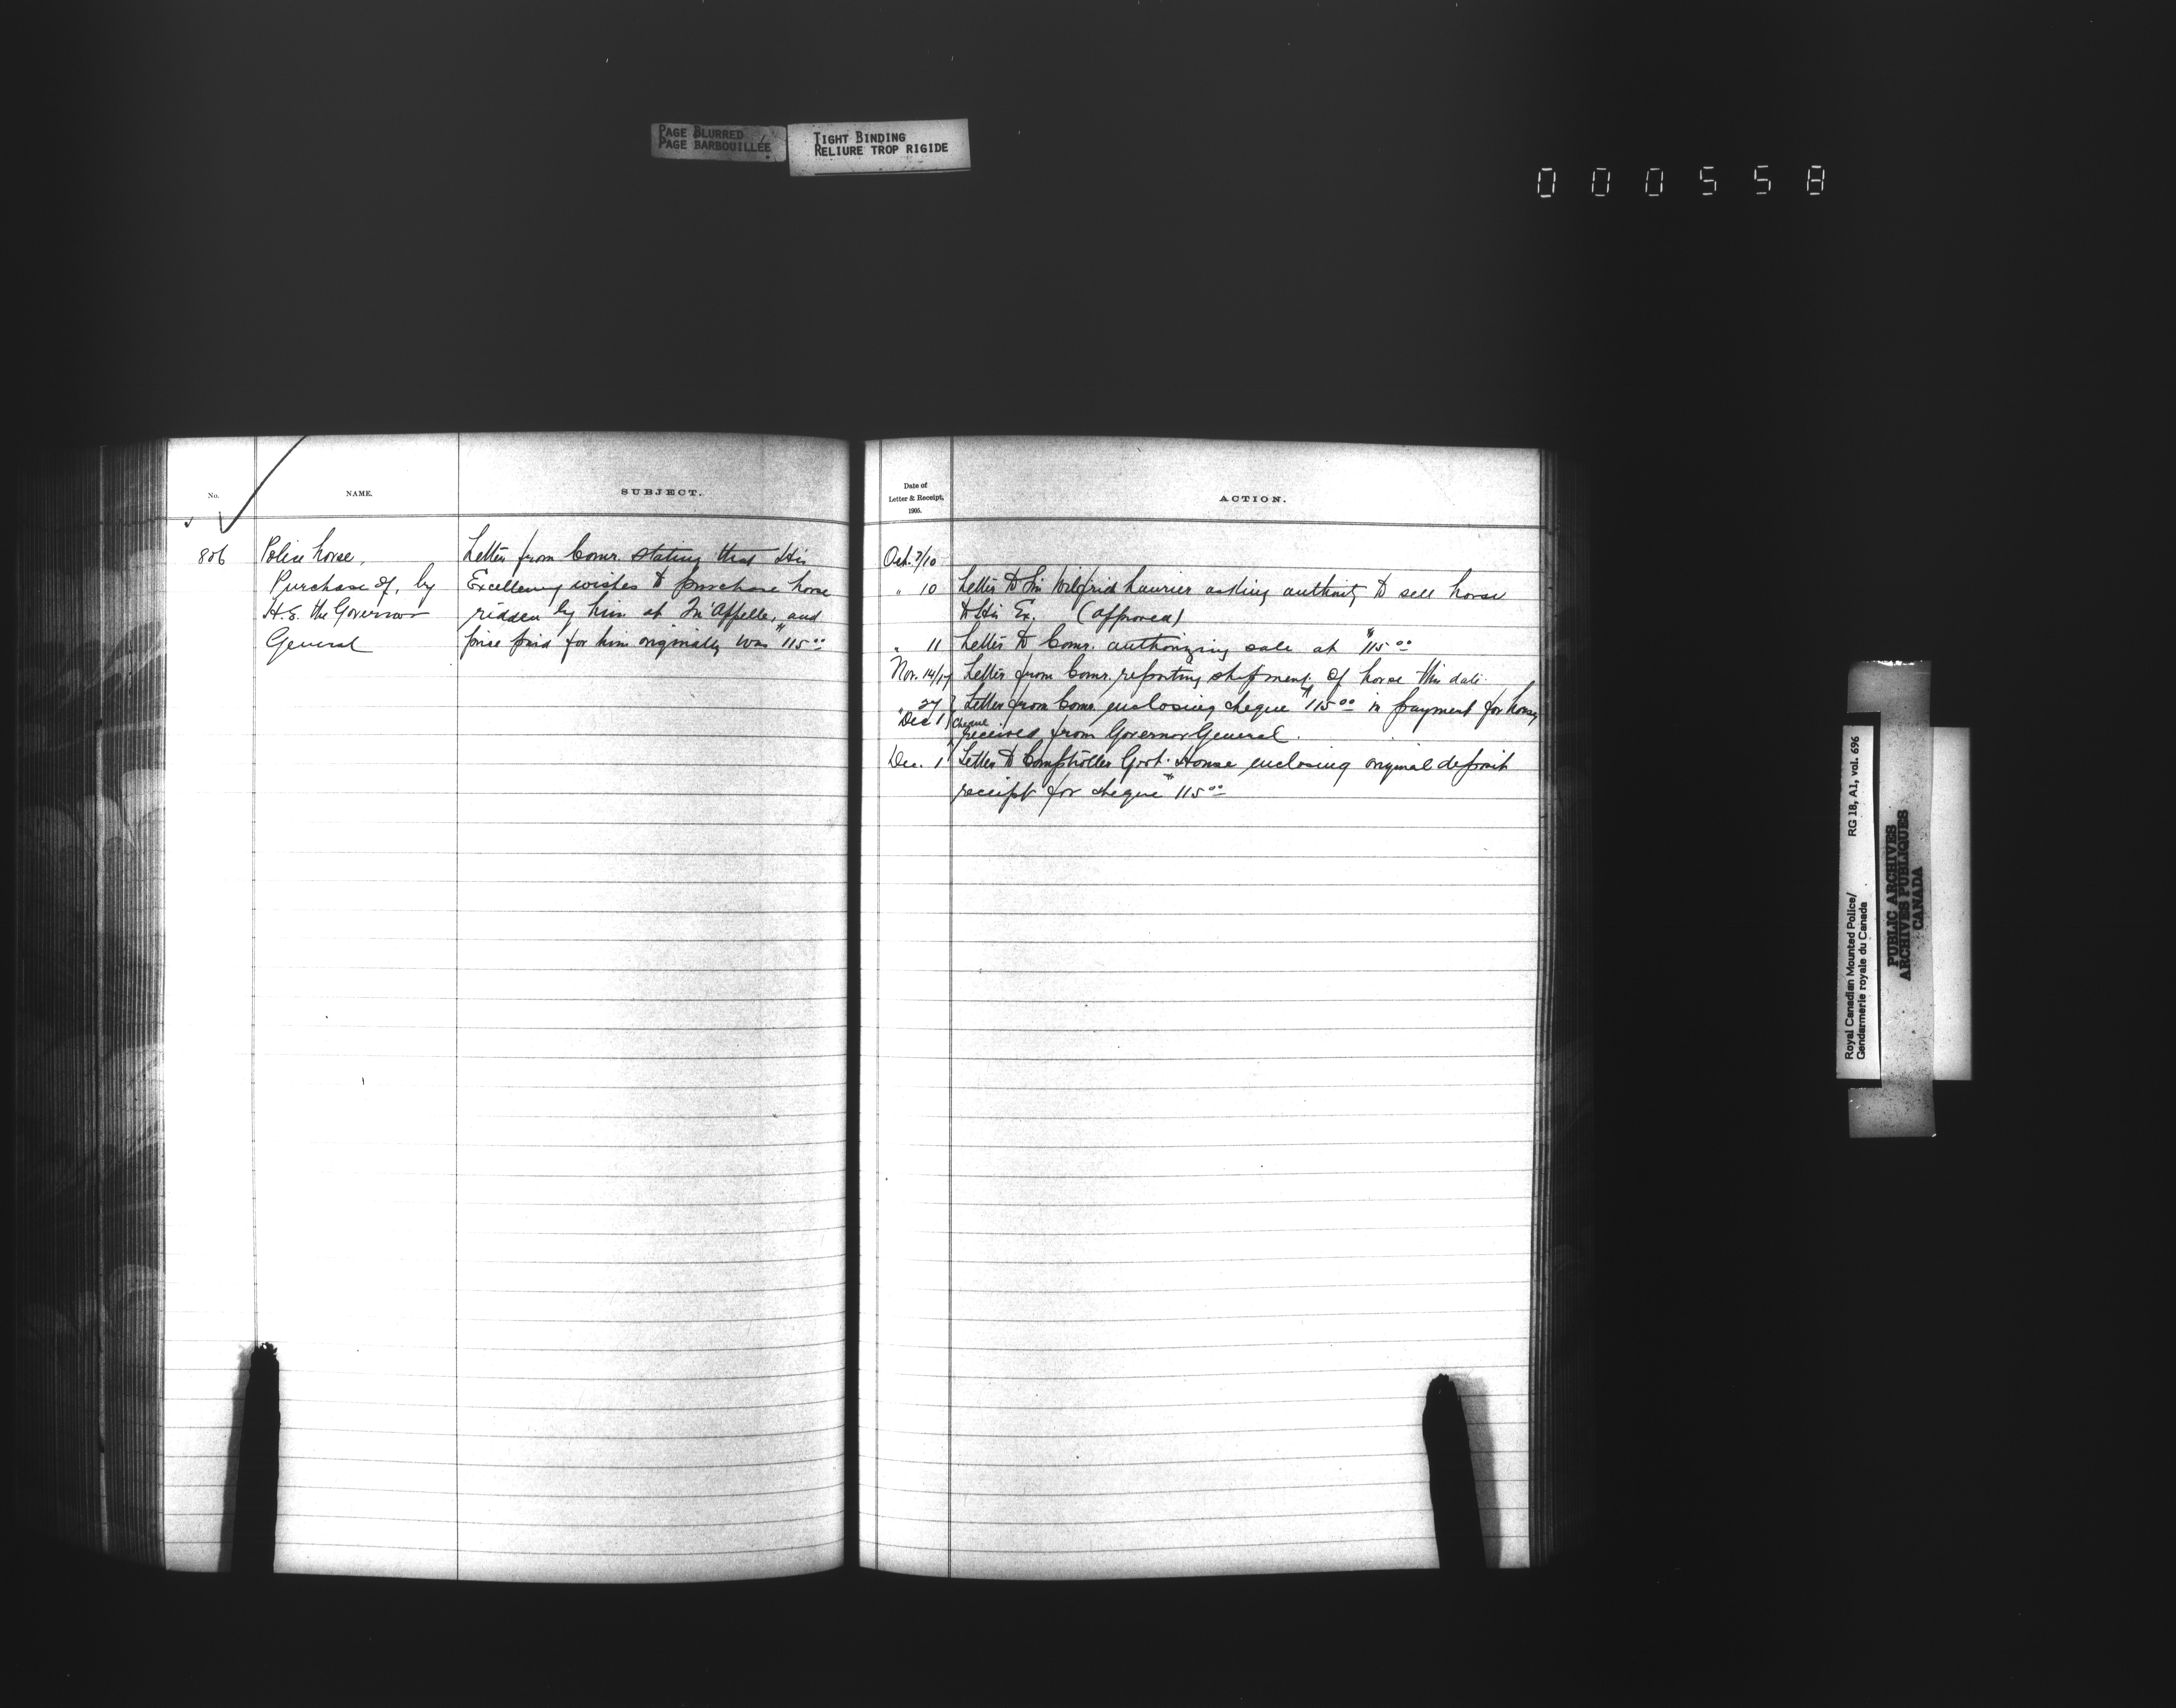 PAGE BLURRED
PAGE BARBOUILLÉE
TIGHT BINDING
RELIURE TROP RIGIDE
000558
No.
NAME.
SUBJECT.
806
Police horse,
Purchase of, by
H.E. the Governor
General
Letter from Comr. stating that His
Excellency wishes to purchase horse
ridden by him at Qu'Appelle, and
price paid for him originally was $115.00
Date of
Letter & Receipt,
1905.
ACTION.
Oct. 7/10
" 10 Letter to Sir Wilfrid Laurier asking authority to sell horse
to His Ex. (approved)
" 11 Letter to Comr. authorizing sale at $115.00
Nov. 14/17 Letter from Comr. reporting shipment of horse this date.
" 27 Letter from Comr. enclosing cheque $115.00 in payment for horse
Dec 1 Cheque
received from Governor General.
Dec. 1 Letter to Comptroller Govt. House enclosing original deposit
receipt for cheque $115.00
Royal Canadian Mounted Police/ RG 18, A1, vol. 696
Gendarmerie royale du Canada
PUBLIC ARCHIVES
ARCHIVES PUBLIQUES
CANADA